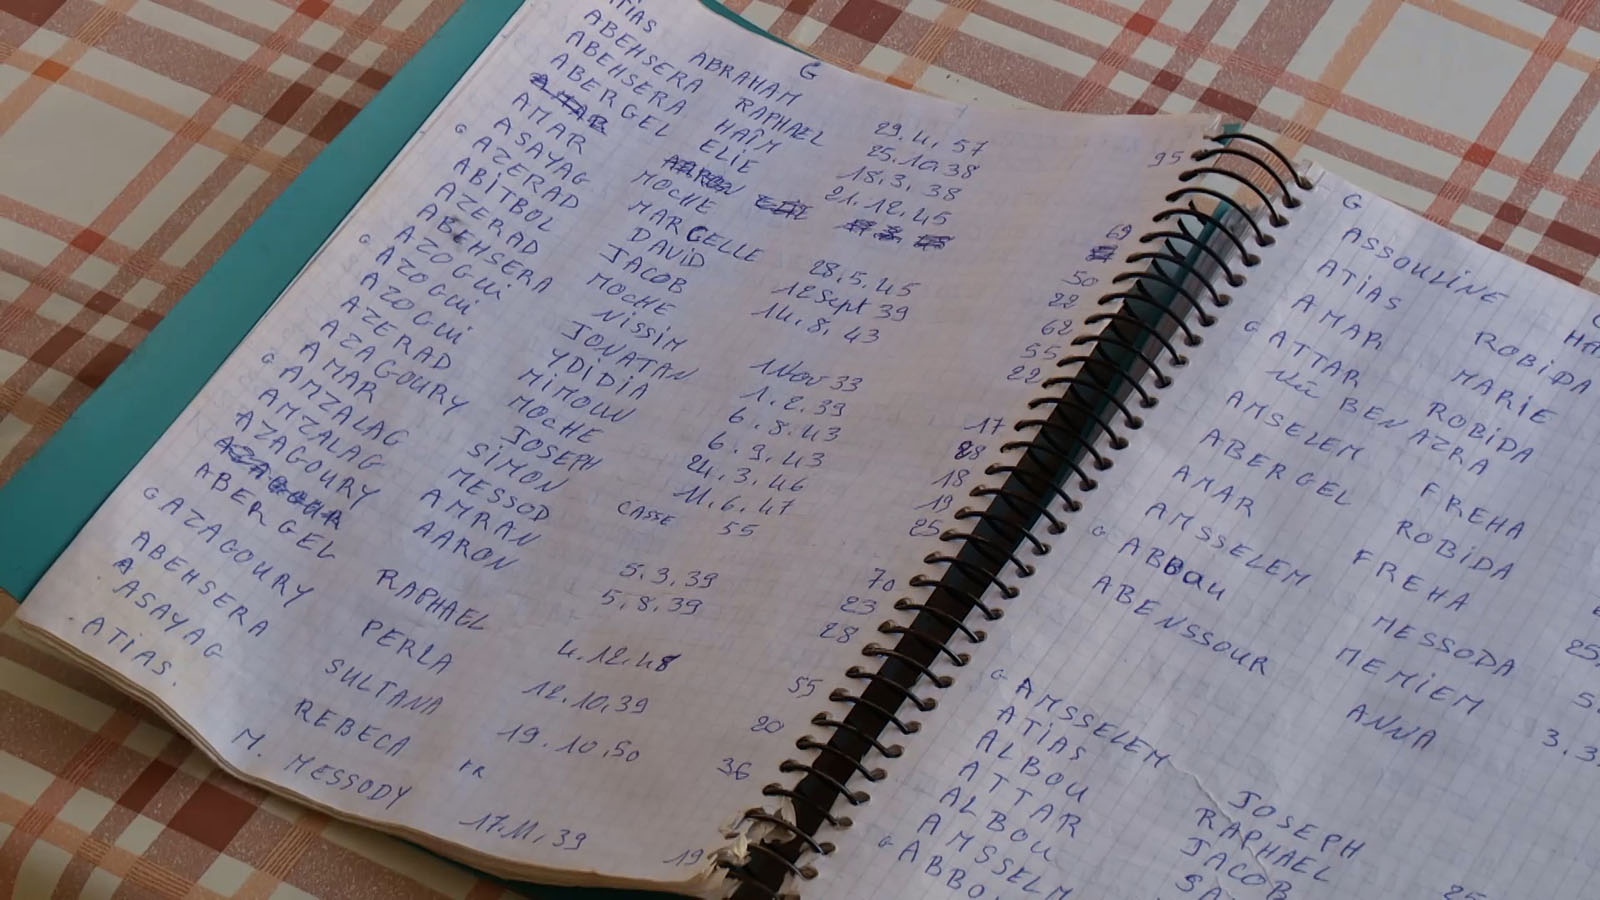 G
ATIAS ABRAHAM 29.4.57 95
ABEHSERA RAPHAEL 25.10.38
ABEHSERA HAÏM 18.3.38
ABERGEL ELIE 21.12.45 69
AMAR AARON
AMAR MOCHE
ASAYAG MARCELLE 28.5.45 50
G AZERAD DAVID 12 Sept 39 22
ABITBOL JACOB 14.8.43 62
AZERAD MOCHE 55
ABEHSERA NISSIM 1 Nov 33 22
G AZOGUI JONATAN 1.2.39
AZOGUI YDIDIA 6.8.43 17
AZOGUI MIMOUN 6.9.43 28
AZERAD MOCHE 24.3.46 18
AZAGOURY JOSEPH 11.6.47 19
AMAR SIMON CASSE 55 25
G AMZALAG MESSOD
AMZALAG AMRAN 5.3.39 70
AZAGOURY AARON 5.8.39 23
AZAGOUR 28
ABERGEL RAPHAEL 4.12.48
G AZAGOURY PERLA 12.10.39 55
ABEHSERA SULTANA 19.10.50 20
A ASAYAG REBECA MR 36
ATIAS. M. MESSODY 17.11.39 19
G
ASSOULINE HA
ATIAS ROBIDA
AMAR MARIE
G ATTAR ROBIDA
née BEN AZRA
AMSELEM FREHA
ABERGEL ROBIDA
AMAR FREHA
AMSSELEM MESSODA 25
G ABBOU MEMIEM 5.
ABENSSOUR ANNA 3.3
G AMSSELEM JOSEPH
ATIAS RAPHAEL 25
ALBOU JACOB
ATTAR SA
ALBOU
AMSSELM
G ABBO